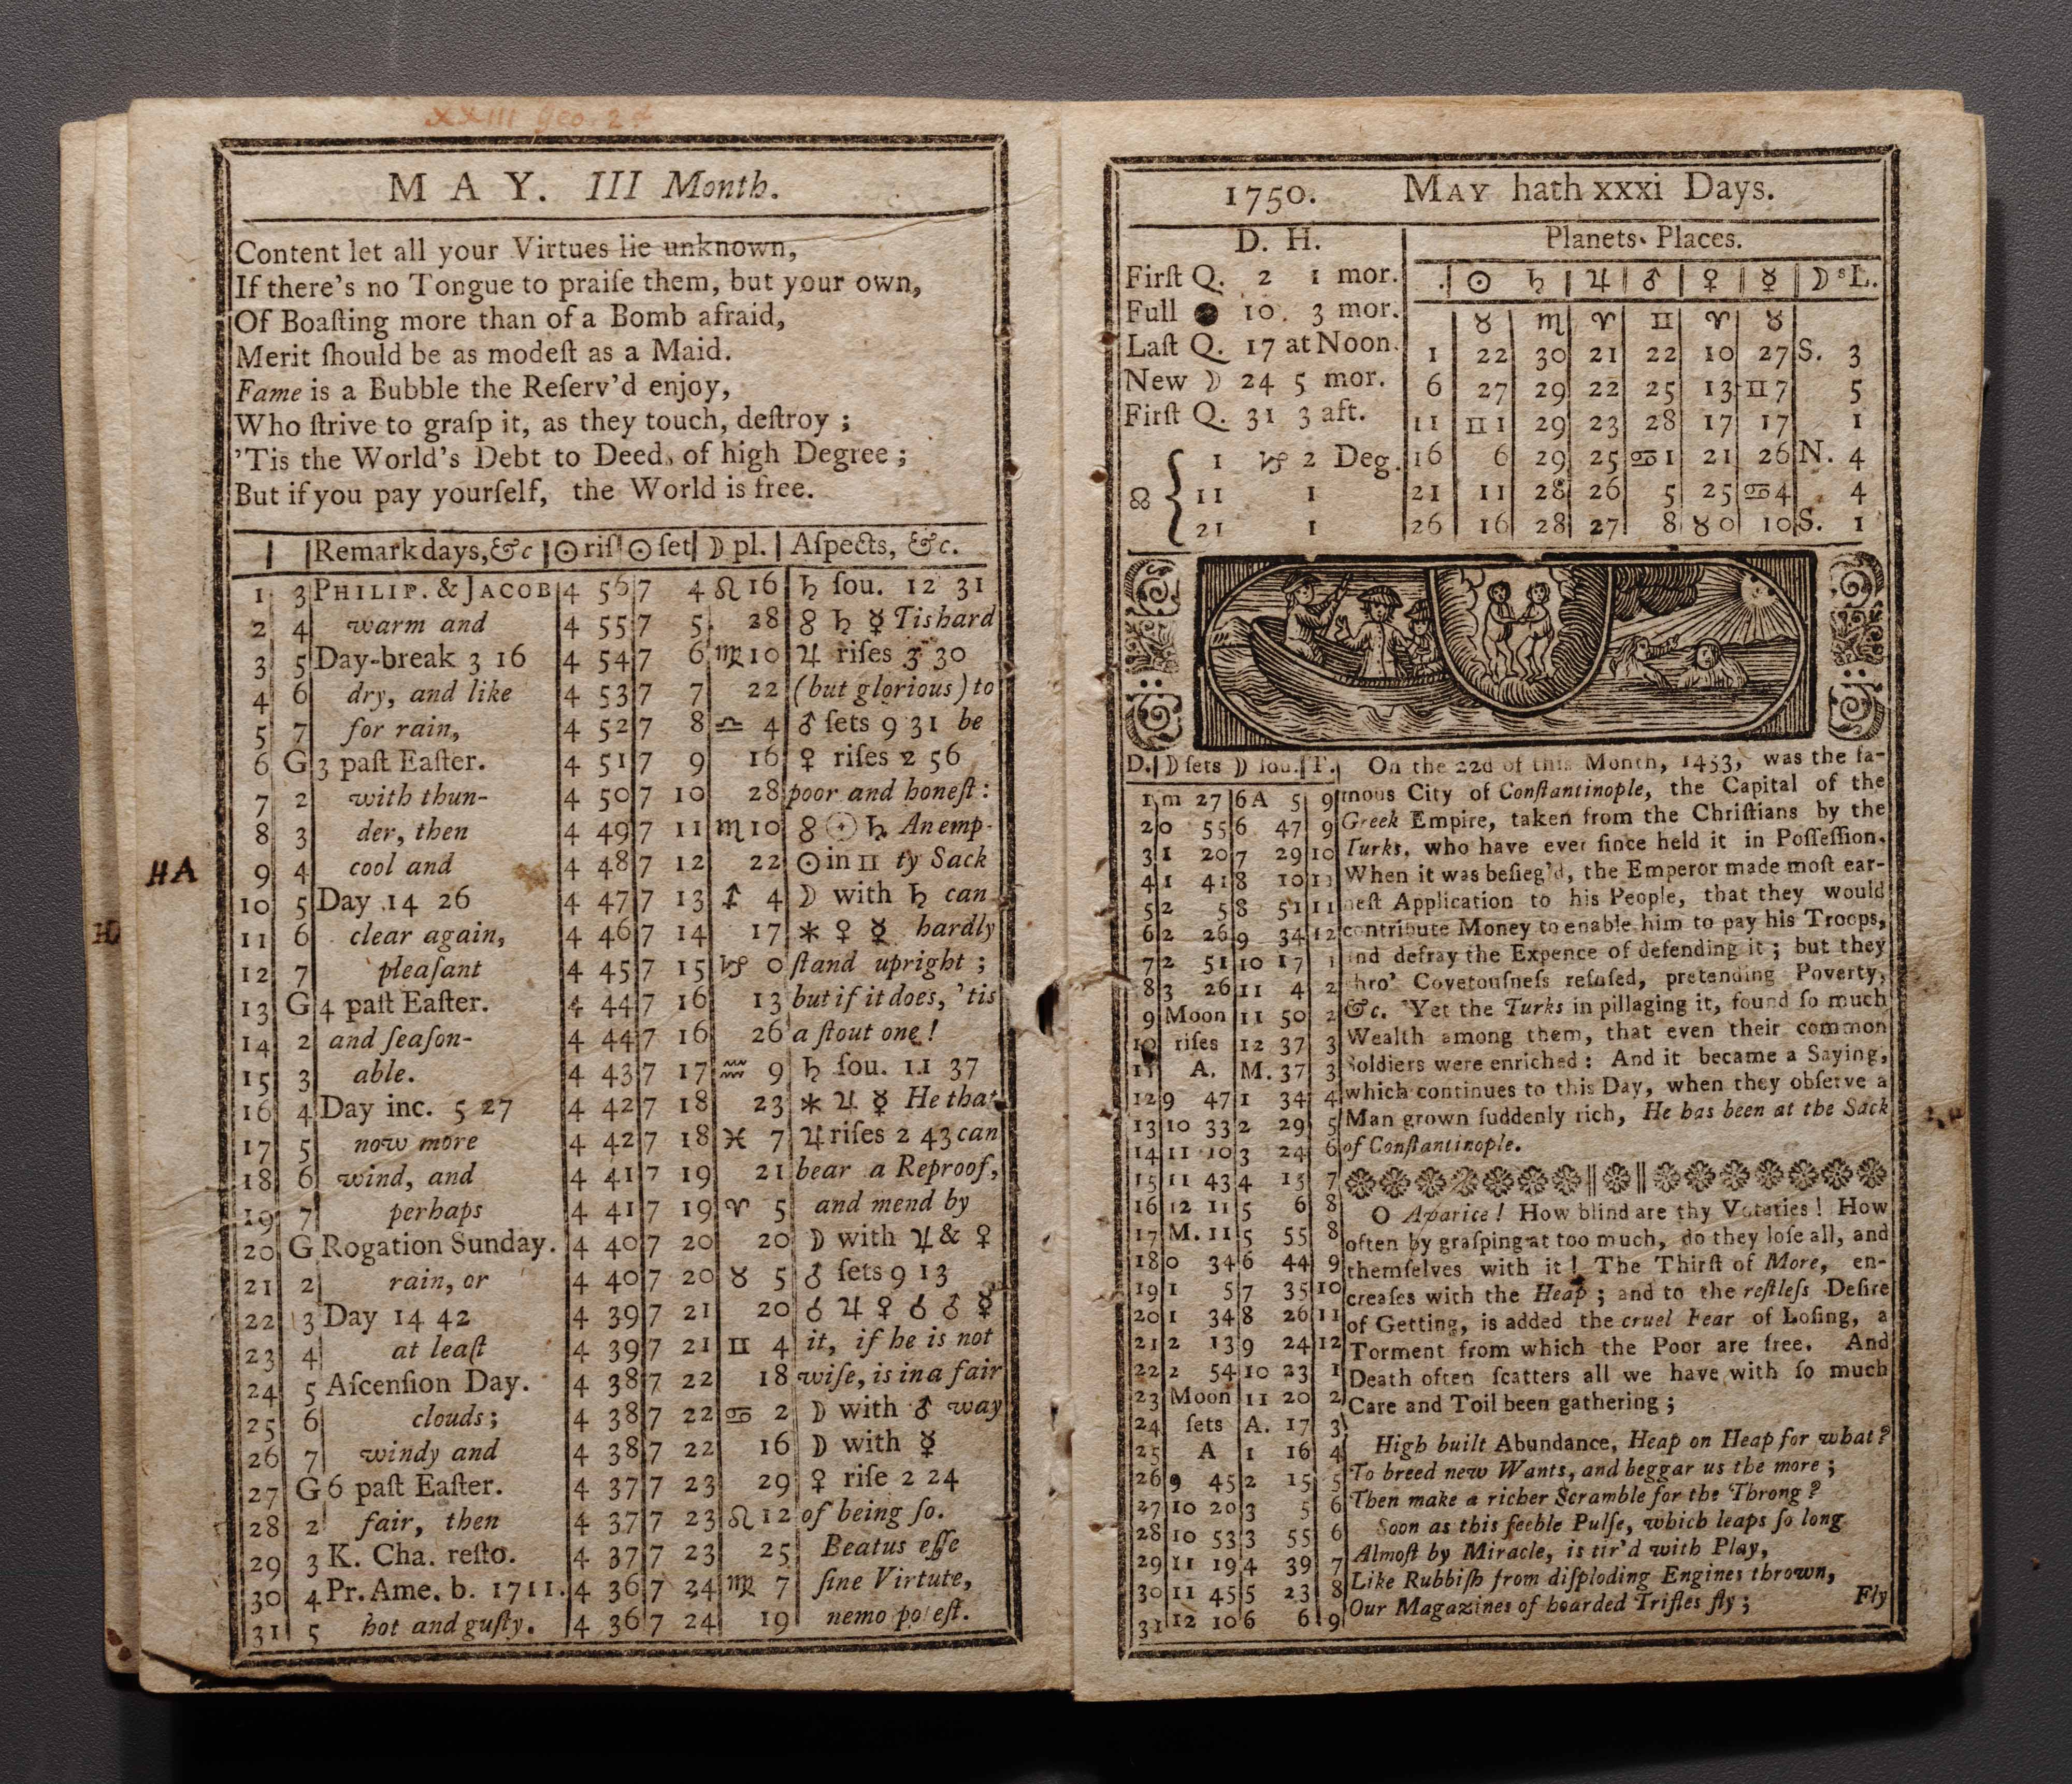 XXIII Geo. 2d
M A Y. III Month.
Content let all your Virtues lie unknown,
If there's no Tongue to praiſe them, but your own,
Of Boaſting more than of a Bomb afraid,
Merit ſhould be as modeſt as a Maid.
Fame is a Bubble the Reſerv'd enjoy,
Who ſtrive to graſp it, as they touch, deſtroy ;
'Tis the World's Debt to Deeds of high Degree ;
But if you pay yourſelf, the World is free.
Remark days, &c ☉ riſ ☉ ſet ☽ pl. Aſpects, &c.
1 3 PHILIP. & JACOB 4 56 7 4 ♌ 16 ♄ ſou. 12 31
2 4 warm and 4 55 7 5 28 ☍ ♄ ☿ Tis hard
3 5 Day-break 3 16 4 54 7 6 ♍ 10 ♃ riſes 3 30
4 6 dry, and like 4 53 7 7 22 (but glorious) to
5 7 for rain, 4 52 7 8 ♎ 4 ♂ ſets 9 31 be
6 G 3 paſt Eaſter. 4 51 7 9 16 ♀ riſes 2 56
7 2 with thun- 4 50 7 10 28 poor and honeſt :
8 3 der, then 4 49 7 11 ♏ 10 ☍ ☉ ♄ An emp-
HA
9 4 cool and 4 48 7 12 22 ☉ in ♊ ty Sack
10 5 Day 14 26 4 47 7 13 ♐ 4 ☽ with ♄ can
11 6 clear again, 4 46 7 14 17 ⚹ ♀ ☿ hardly
12 7 pleaſant 4 45 7 15 ♑ 0 ſtand upright ;
13 G 4 paſt Eaſter. 4 44 7 16 13 but if it does, 'tis
14 2 and ſeaſon- 4 44 7 16 26 a ſtout one !
15 3 able. 4 43 7 17 ♒ 9 ♄ ſou. 11 37
16 4 Day inc. 5 27 4 42 7 18 23 ⚹ ♃ ☿ He that
17 5 now more 4 42 7 18 ♓ 7 ♃ riſes 2 43 can
18 6 wind, and 4 41 7 19 21 bear a Reproof,
19 7 perhaps 4 41 7 19 ♈ 5 and mend by
20 G Rogation Sunday. 4 40 7 20 20 ☽ with ♃ & ♀
21 2 rain, or 4 40 7 20 ♉ 5 ♂ ſets 9 13
22 3 Day 14 42 4 39 7 21 20 ☌ ♃ ♀ ☌ ♂ ☿
23 4 at leaſt 4 39 7 21 ♊ 4 it, if he is not
24 5 Aſcenſion Day. 4 38 7 22 18 wiſe, is in a fair
25 6 clouds ; 4 38 7 22 ♋ 2 ☽ with ♂ way
26 7 windy and 4 38 7 22 16 ☽ with ☿
27 G 6 paſt Eaſter. 4 37 7 23 29 ♀ riſe 2 24
28 2 fair, then 4 37 7 23 ♌ 12 of being ſo.
29 3 K. Cha. reſto. 4 37 7 23 25 Beatus eſſe
30 4 Pr. Ame. b. 1711. 4 36 7 24 ♍ 7 ſine Virtute,
31 5 hot and guſty. 4 36 7 24 19 nemo poteſt.
1750. MAY hath xxxi Days.
D. H.
Firſt Q. 2 1 mor.
Full ● 10. 3 mor.
Laſt Q. 17 at Noon.
New ☽ 24 5 mor.
Firſt Q. 31 3 aft.
☊ { 1 ♑ 2 Deg.
11 1
21 1
Planets Places.
☉ ♄ ♃ ♂ ♀ ☿ ☽ s L.
♉ ♏ ♈ ♊ ♈ ♉
1 22 30 21 22 10 27 S. 3
6 27 29 22 25 13 ♊ 7 5
11 ♊ 1 29 23 28 17 17 1
16 6 29 25 ♋ 1 21 26 N. 4
21 11 28 26 5 25 ♋ 4 4
26 16 28 27 8 ♉ 0 10 S. 1
D. ☽ ſets ☽ ſou. T.
1 m 27 6 A 5 9
2 0 55 6 47 9
3 1 20 7 29 10
4 1 41 8 10 11
5 2 5 8 51 11
6 2 26 9 34 12
7 2 51 10 17 1
8 3 26 11 4 2
9 Moon 11 50 2
10 riſes 12 37 3
11 A. M. 37 3
12 9 47 1 34 4
13 10 33 2 29 5
14 11 10 3 24 6
15 11 43 4 15 7
16 12 11 5 6 8
17 M. 11 5 55 8
18 0 34 6 44 9
19 1 5 7 35 10
20 1 34 8 26 11
21 2 13 9 24 12
22 2 54 10 23 1
23 Moon 11 20 2
24 ſets A. 17 3
25 A 1 16 4
26 9 45 2 15 5
27 10 20 3 5 6
28 10 53 3 55 6
29 11 19 4 39 7
30 11 45 5 23 8
31 12 10 6 6 9
On the 22d of this Month, 1453, was the fa-
mous City of Conſtantinople, the Capital of the
Greek Empire, taken from the Chriſtians by the
Turks, who have ever ſince held it in Poſſeſſion.
When it was beſieg'd, the Emperor made moſt ear-
neſt Application to his People, that they would
contribute Money to enable him to pay his Troops,
and defray the Expence of defending it ; but they
thro' Covetouſneſs refuſed, pretending Poverty,
&c. Yet the Turks in pillaging it, found ſo much
Wealth among them, that even their common
Soldiers were enriched : And it became a Saying,
which continues to this Day, when they obſerve a
Man grown ſuddenly rich, He has been at the Sack
of Conſtantinople.
O Avarice ! How blind are thy Votaries ! How
often by graſping at too much, do they loſe all, and
themſelves with it ! The Thirſt of More, en-
creaſes with the Heap ; and to the reſtleſs Deſire
of Getting, is added the cruel Fear of Loſing, a
Torment from which the Poor are free. And
Death often ſcatters all we have with ſo much
Care and Toil been gathering ;
High built Abundance, Heap on Heap for what ?
To breed new Wants, and beggar us the more ;
Then make a richer Scramble for the Throng ?
Soon as this feeble Pulſe, which leaps ſo long
Almoſt by Miracle, is tir'd with Play,
Like Rubbiſh from diſploding Engines thrown,
Our Magazines of hoarded Trifles fly ;
Fly